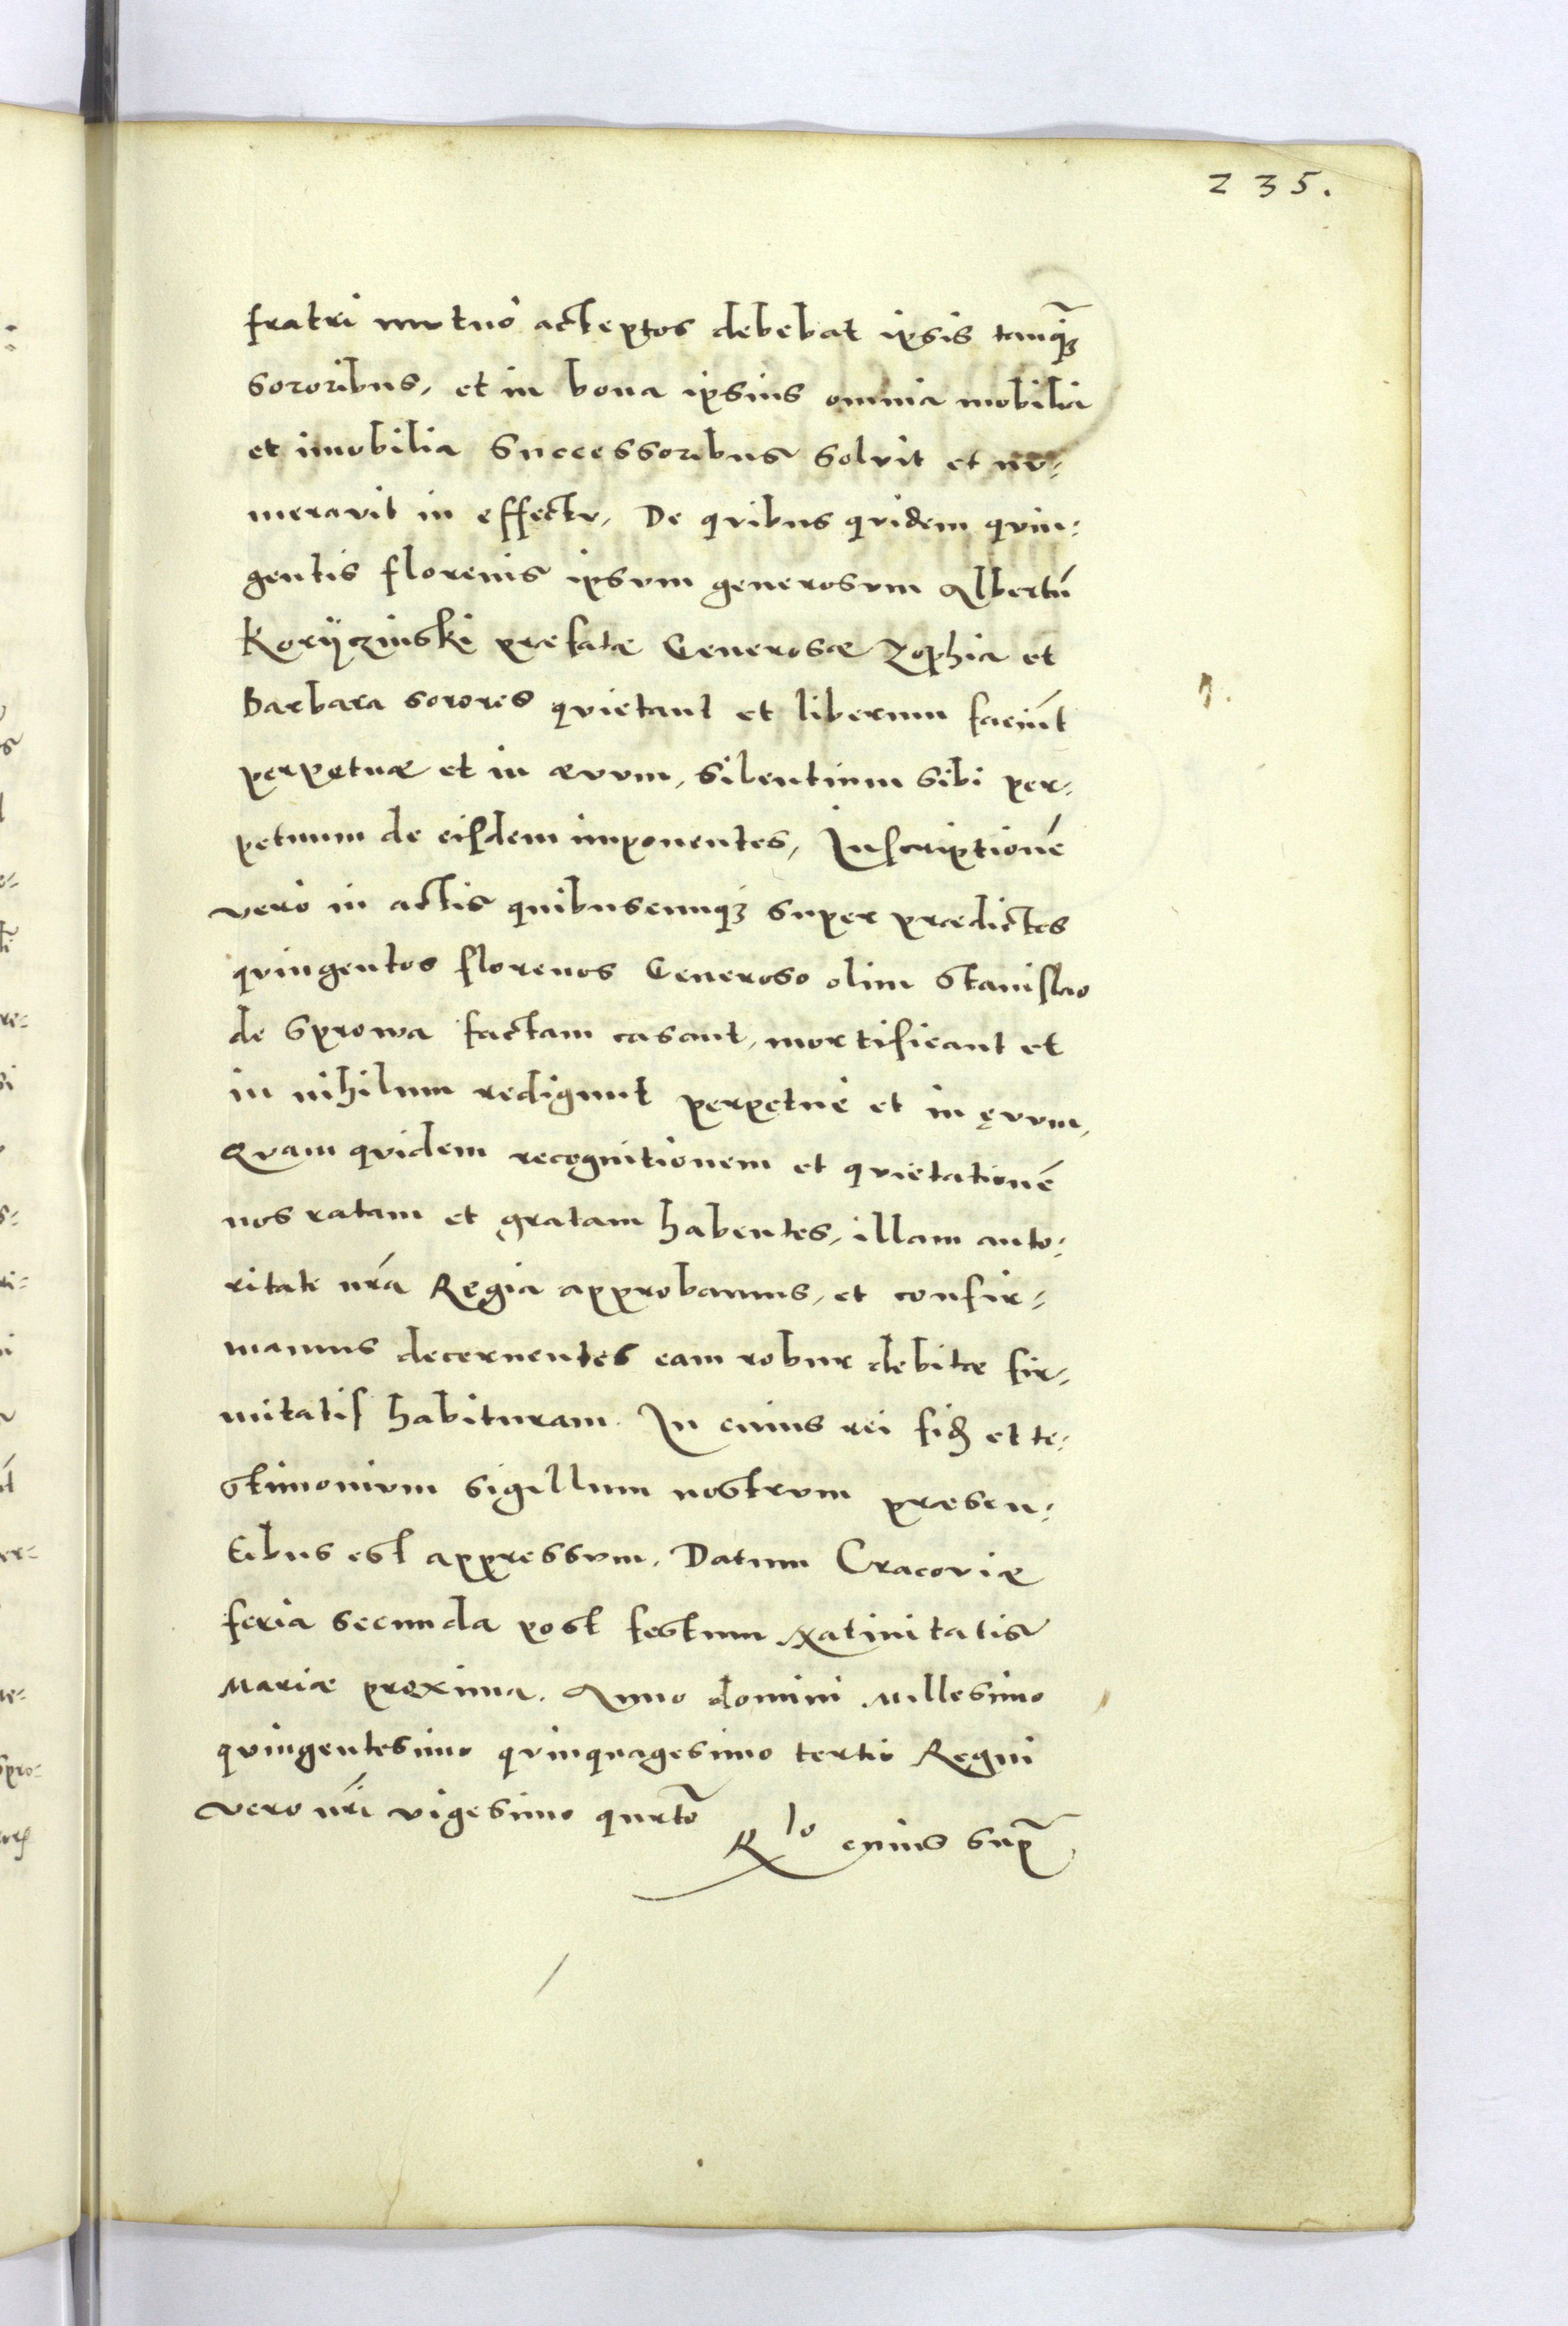 235.
fratri mutuo acceptos debebat ipsis tanq̃ꝫ
sororibus, et in bona ipsius omnia mobilia
et imobilia successoribus solvit et nu-
meravit in effectu, De quibus quidem quin-
gentis florenis ipsum generosum Albertũ
Koryczinski præfatæ Generosæ Zophia et
Barbara sorores quietant et liberum faciũt
perpetuæ et in ævum, silentium sibi per-
petuum de eisdem imponentes, Inscriptionẽ
vero in actis quibuscunqꝫ super prædictos
quingentos florenos Generoso olim Stanislao
de Sprowa factam casant, mortificant et
in nihilum redigunt perpetue et in ęvum,
Quam quidem recognitionem et quietationẽ
nos ratam et gratam habentes, illam auto-
ritate nr̃a Regia approbamus, et confir-
mamus decernentes eam robur debitæ fir-
mitatis habituram. In cuius rei fid et te-
stimonium sigillum nostrum præsen-
tibus est appressum. Datum Cracoviæ
feria secunda post festum Natiuitatis
Mariæ proxima. Anno domini Millesimo
quingentesimo quinquagesimo tertio Regni
vero nr̃i vigesimo qurto
Rlo cuius sup̃